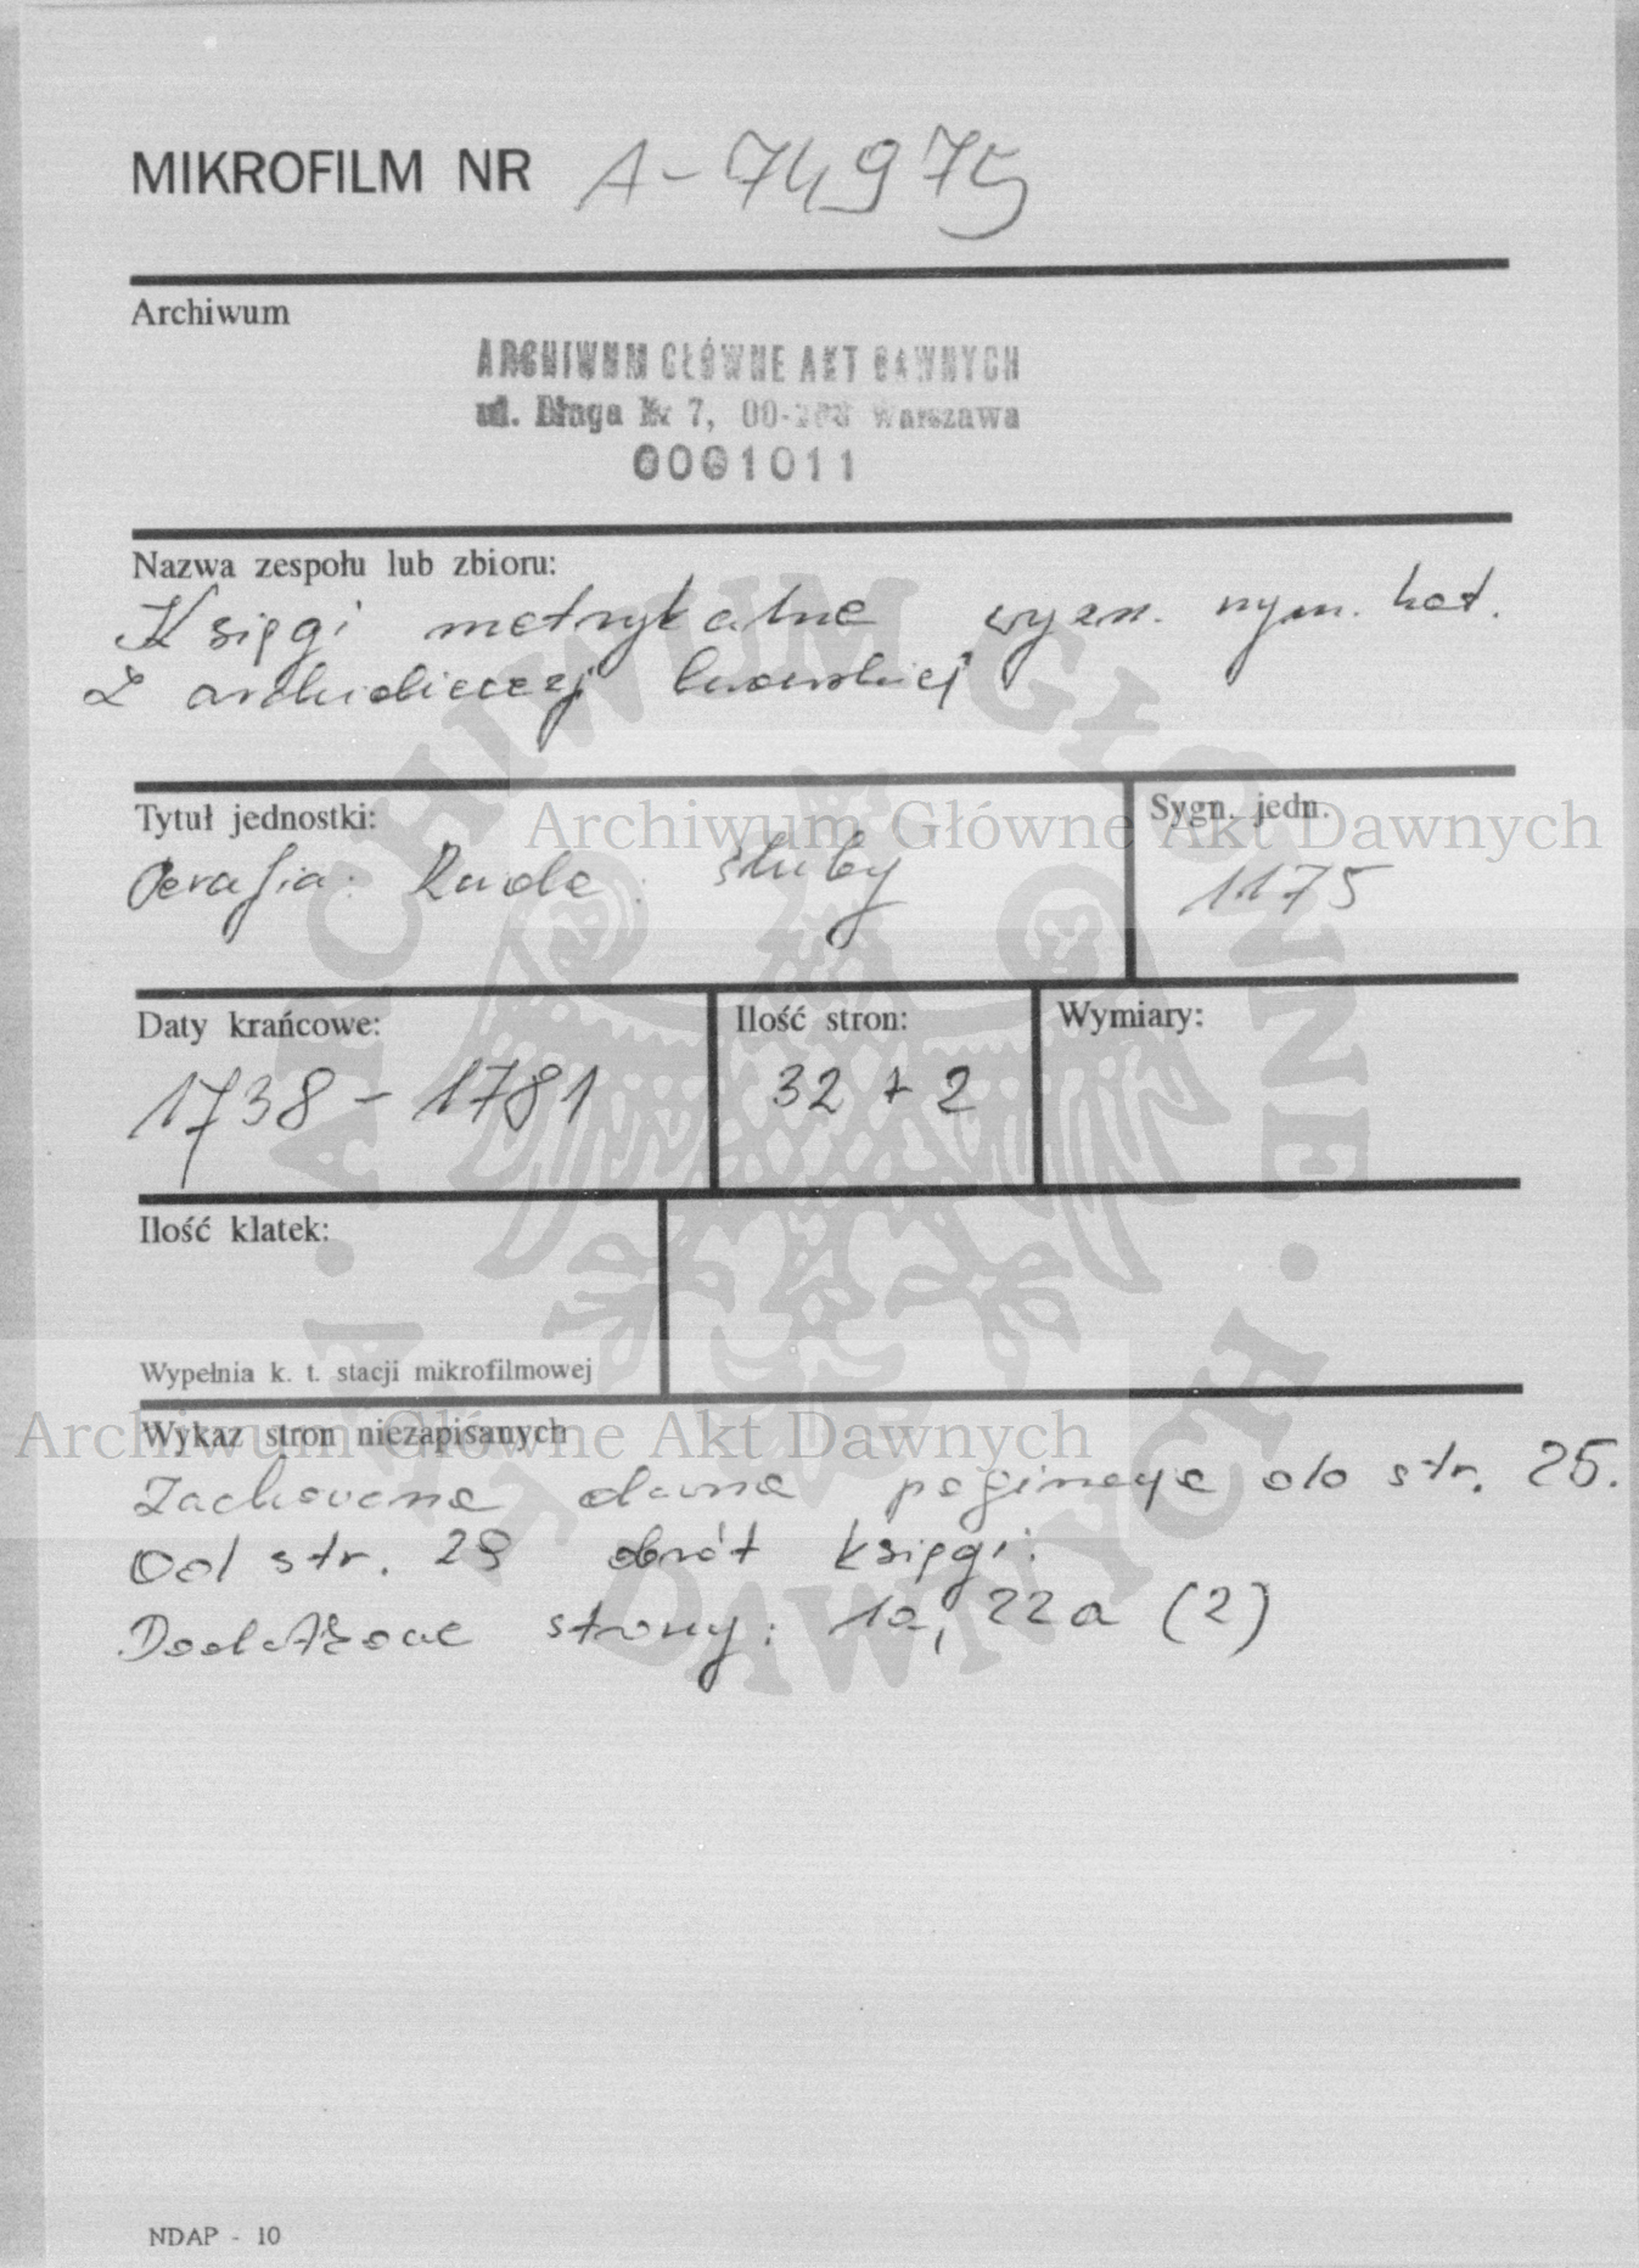 MIKROFILM NR A-74975
Archiwum
ARCHIWUM GŁÓWNE AKT DAWNYCH
ul. Długa Nr 7, 00-263 Warszawa
0001011
Nazwa zespołu lub zbioru:
Księgi metrykalne wyzn. rzym. kat.
z archidiecezji lwowskiej
Tytuł jednostki:
Sygn. jedn.
Parafia: Ruda: śluby
1175
Daty krańcowe:
Ilość stron:
Wymiary:
1738 - 1781
32 + 2
Ilość klatek:
Wypełnia k. t. stacji mikrofilmowej
Wykaz stron niezapisanych
Zachowana dawna paginacja do str. 25.
Od str. 29 obrót księgi.
Dodatkowe strony: 1a, 22a (2)
NDAP - 10
Archiwum Główne Akt Dawnych
Archiwum Główne Akt Dawnych
ARCHIWUM GŁÓWNE
AKT DAWNYCH